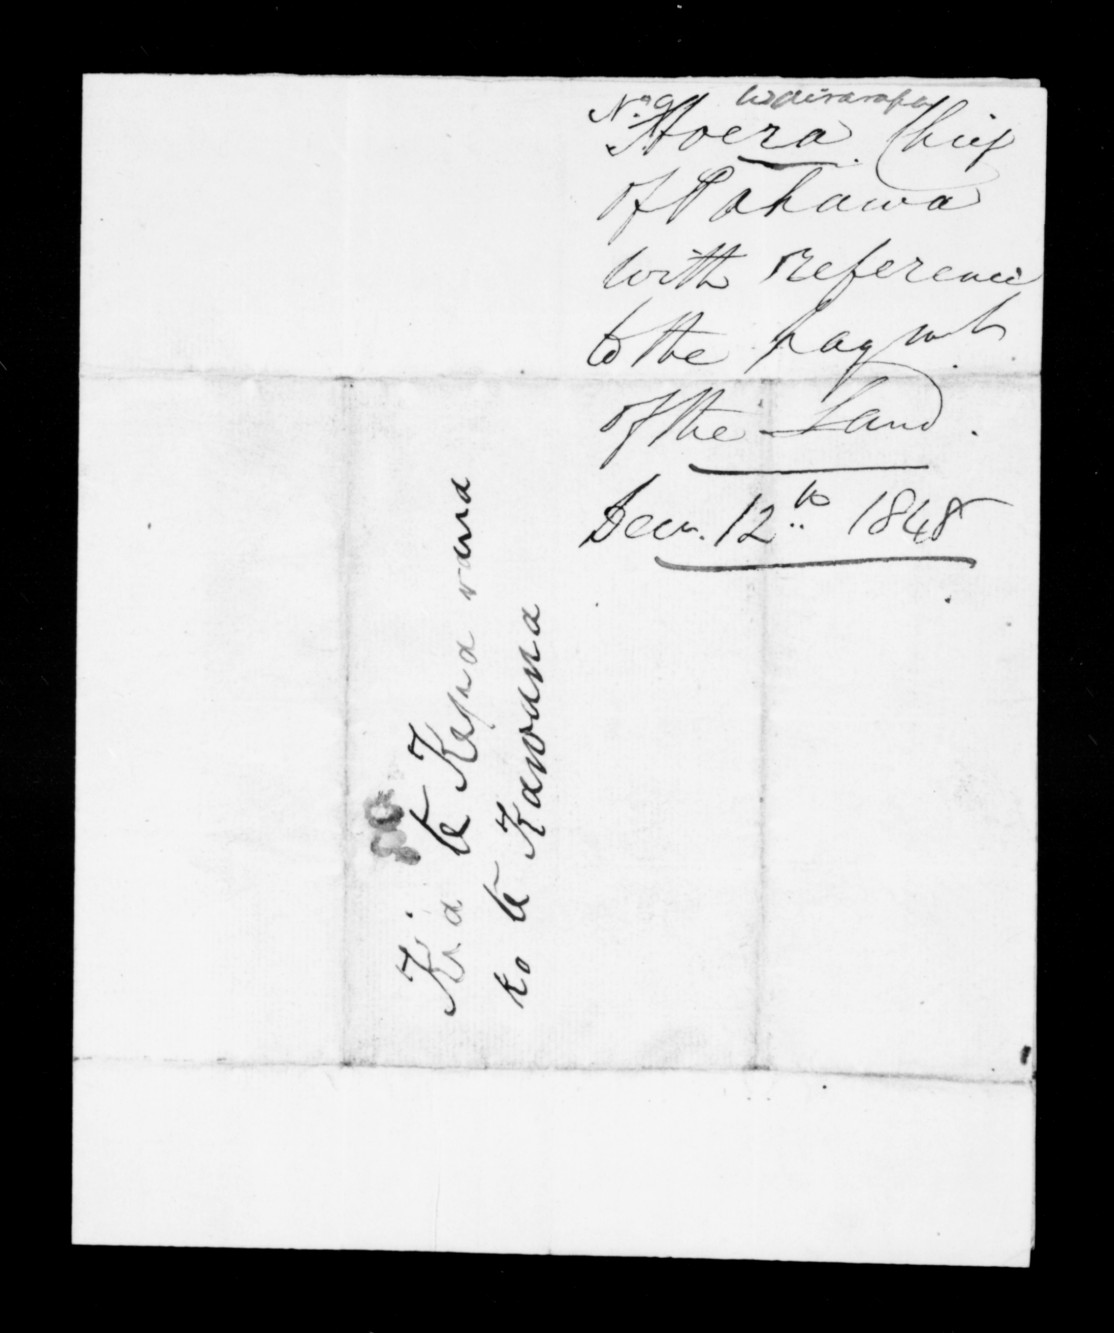 No. 9 Wairarapa
Hoera Chief
of Pahawa
with reference
to the paymt
of the Land.
Decr. 12th 1848
Kia te Kapa rana
ko te Kawana